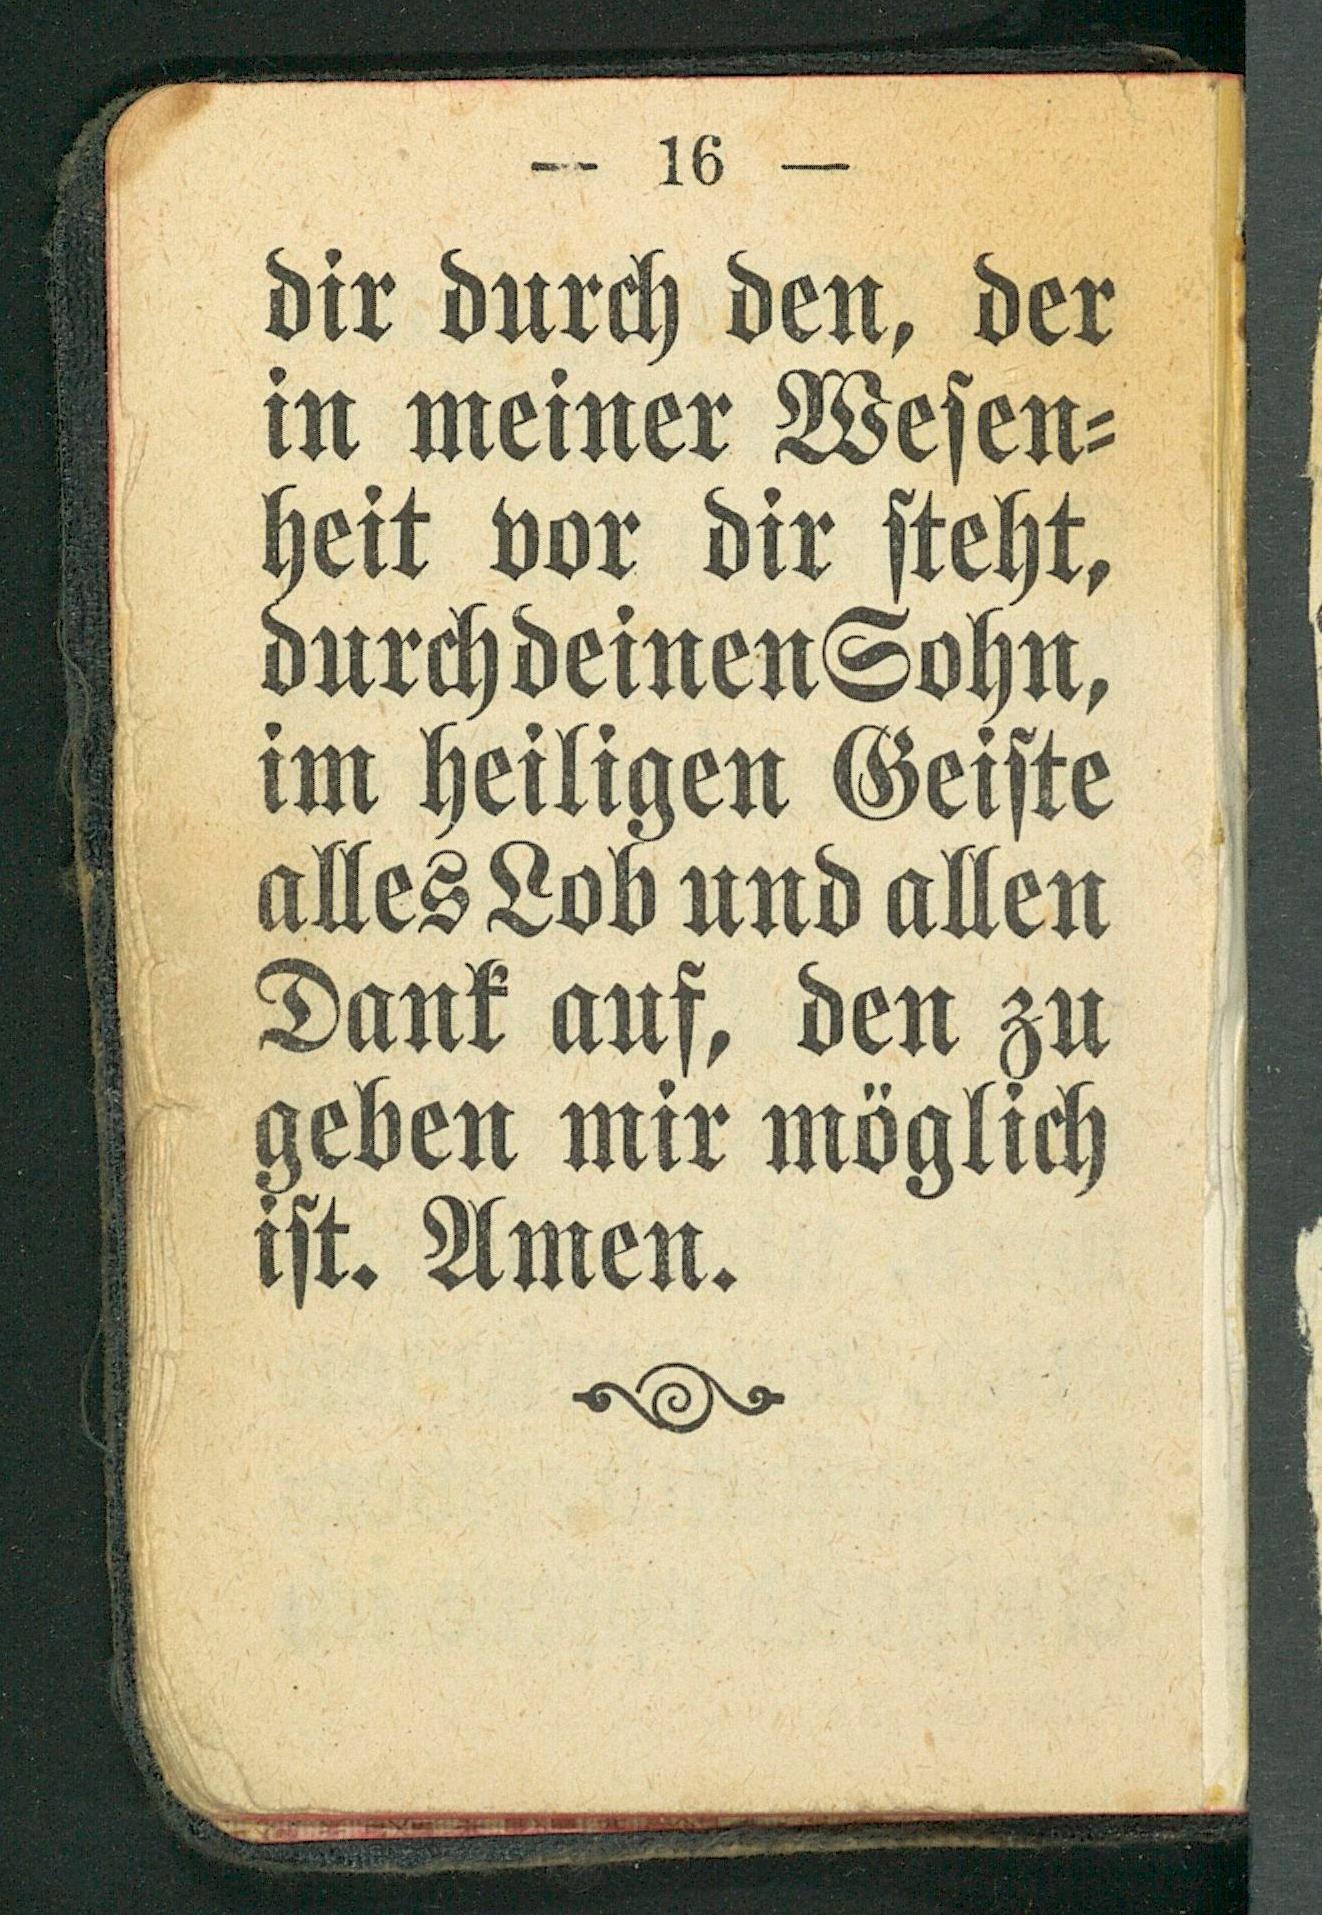 — 16 —
dir durch den, der
in meiner Weſen⸗
heit vor dir ſteht,
durch deinen Sohn,
im heiligen Geiſte
alles Lob und allen
Dank auf, den zu
geben mir möglich
iſt. Amen.